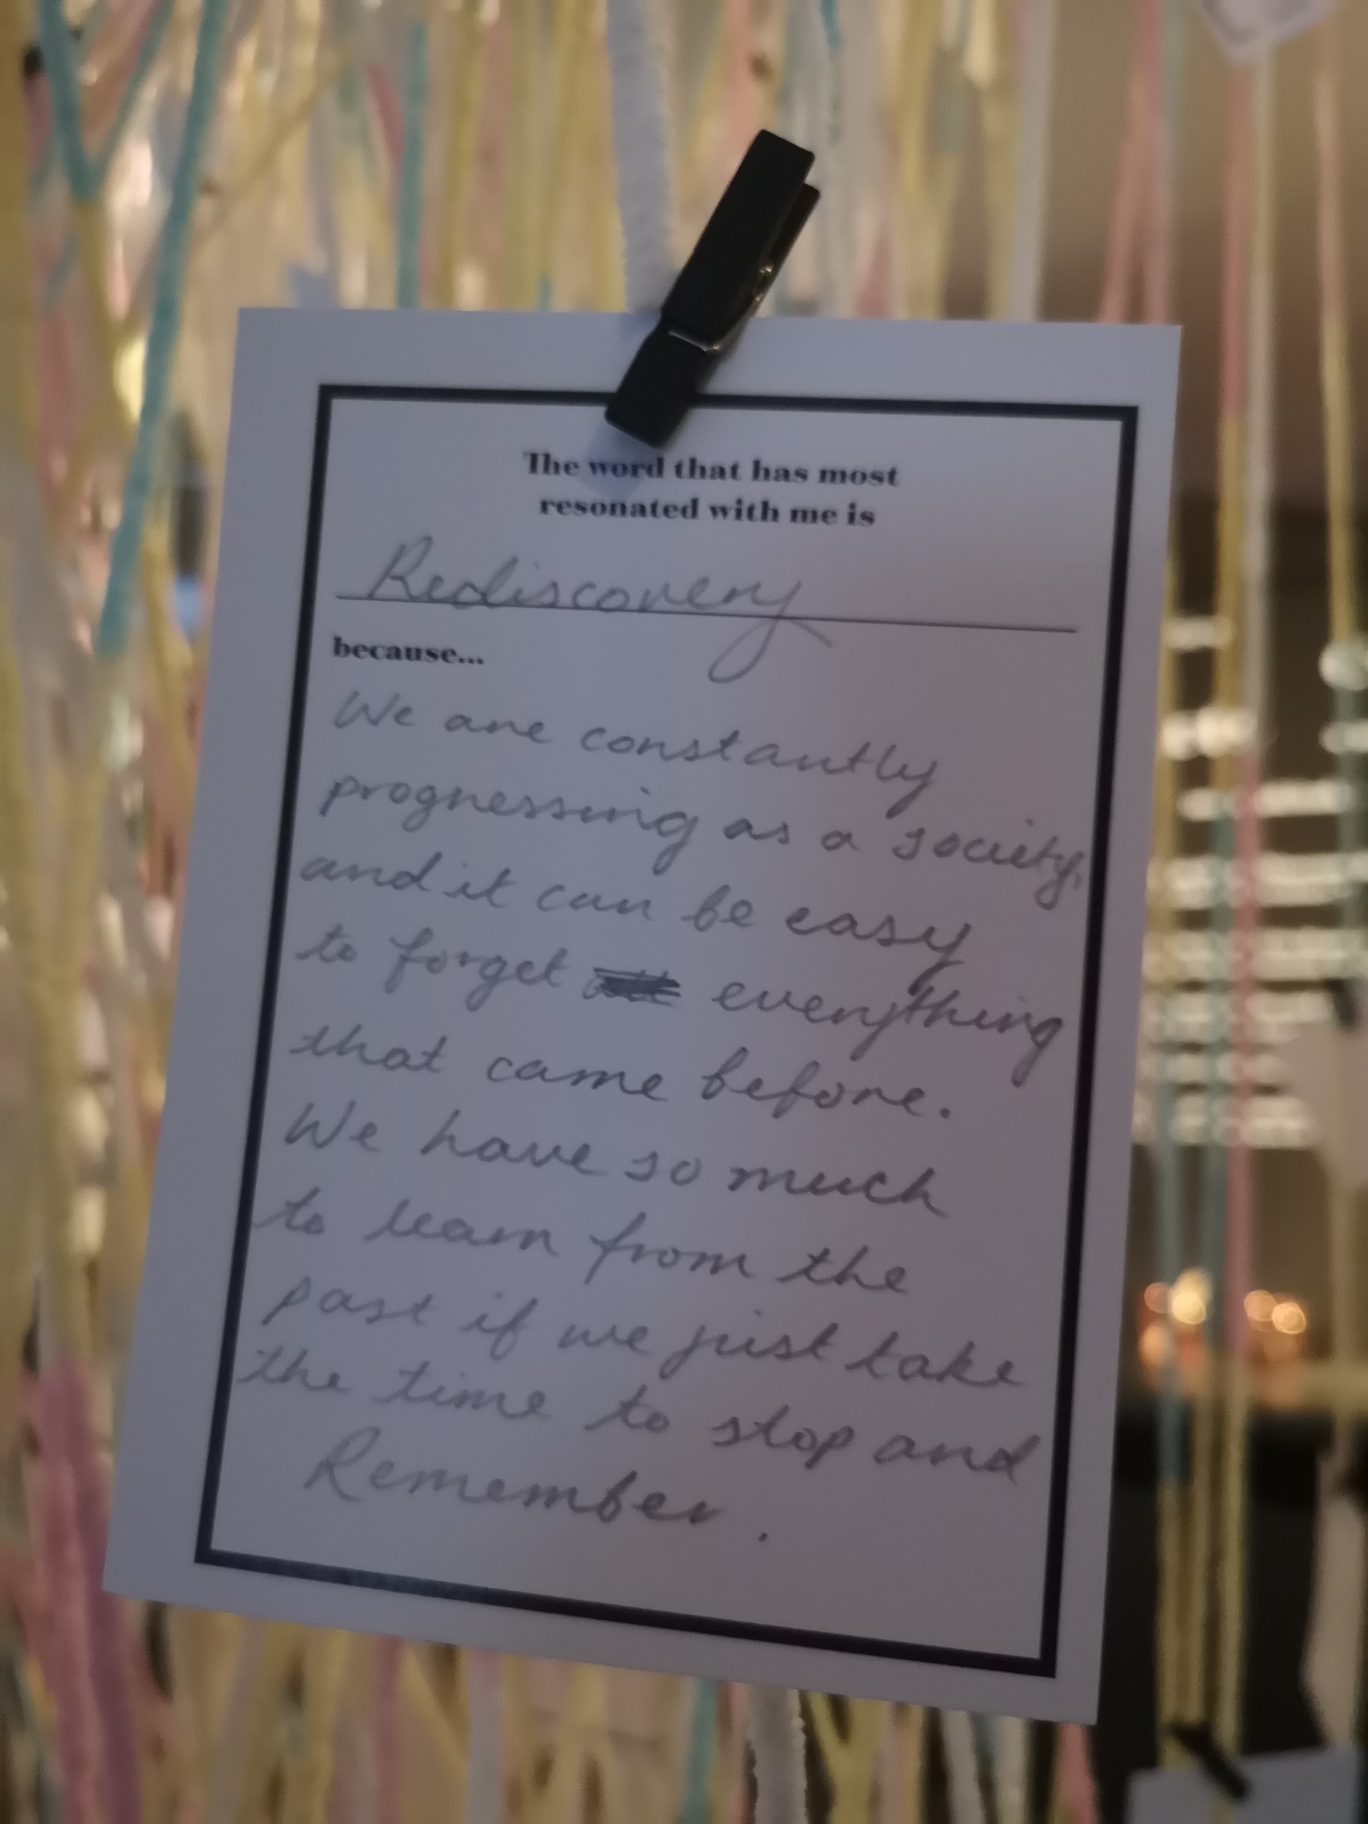 The word that has most
resonated with me is
Rediscovery
because...
We are constantly
progressing as a society,
and it can be easy
to forget everything
that came before.
We have so much
to learn from the
past if we just take
the time to stop and
Remember.